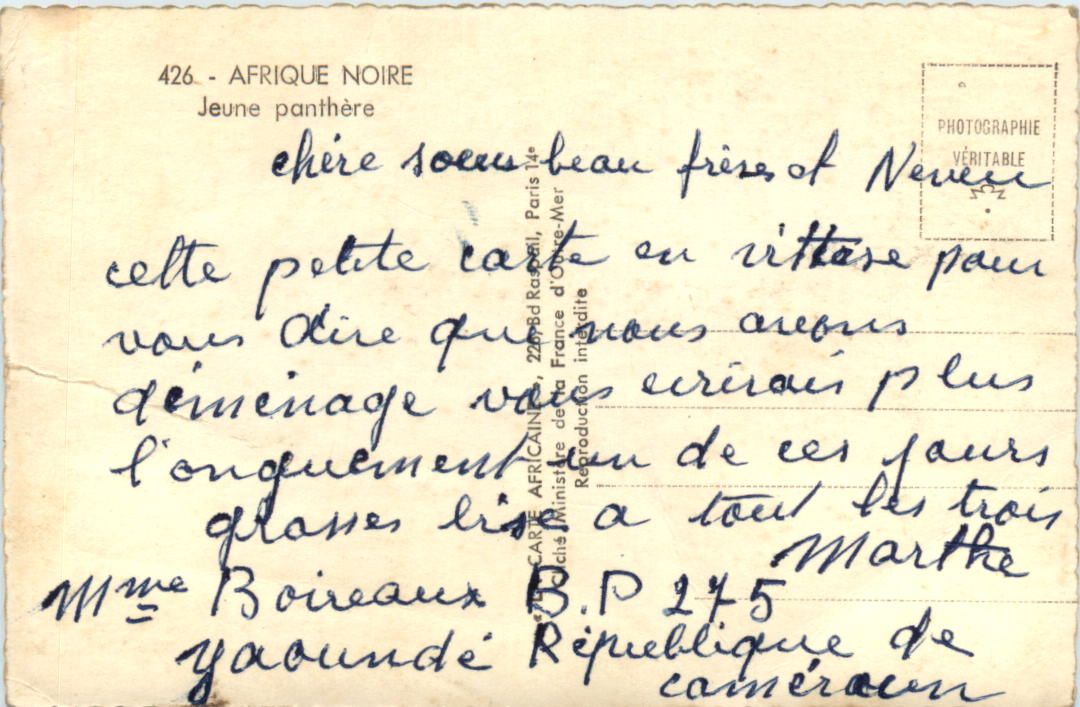 426 - AFRIQUE NOIRE
Jeune panthère
PHOTOGRAPHIE
VÉRITABLE
chére soeur beau frère et Neveu
cette petite carte en vittese pour
vous dire que nous avons
déménage vous ecrirais plus
l'onguement un de ces jours
grosses bises a tout les trois
Marthe
Mme Boireaux B.P 275
Yaoundé République de
caméroun
CARTE AFRICAINE », 226, Bd Raspail, Paris 14e
Cliché Ministère de la France d'Outre-Mer
Reproduction interdite